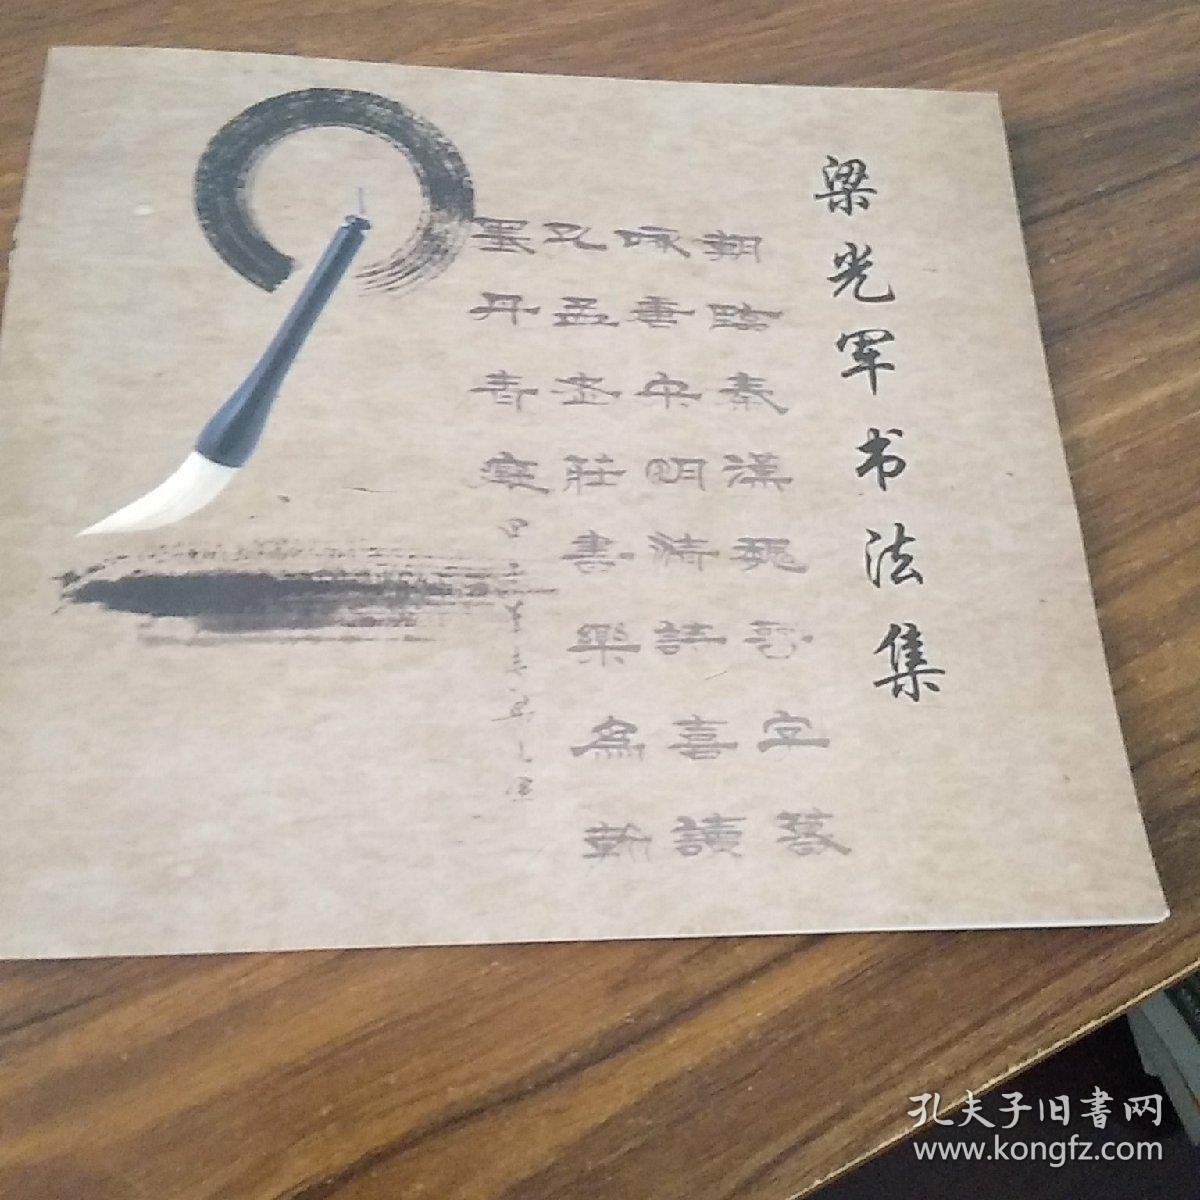 梁光军书法集
朝臨秦漢魏晉立暮
咏唐宋明清詩喜讀
孔孟老莊書樂為翰
墨丹青寂
甲
孔夫子旧書网
www.kongfz.com